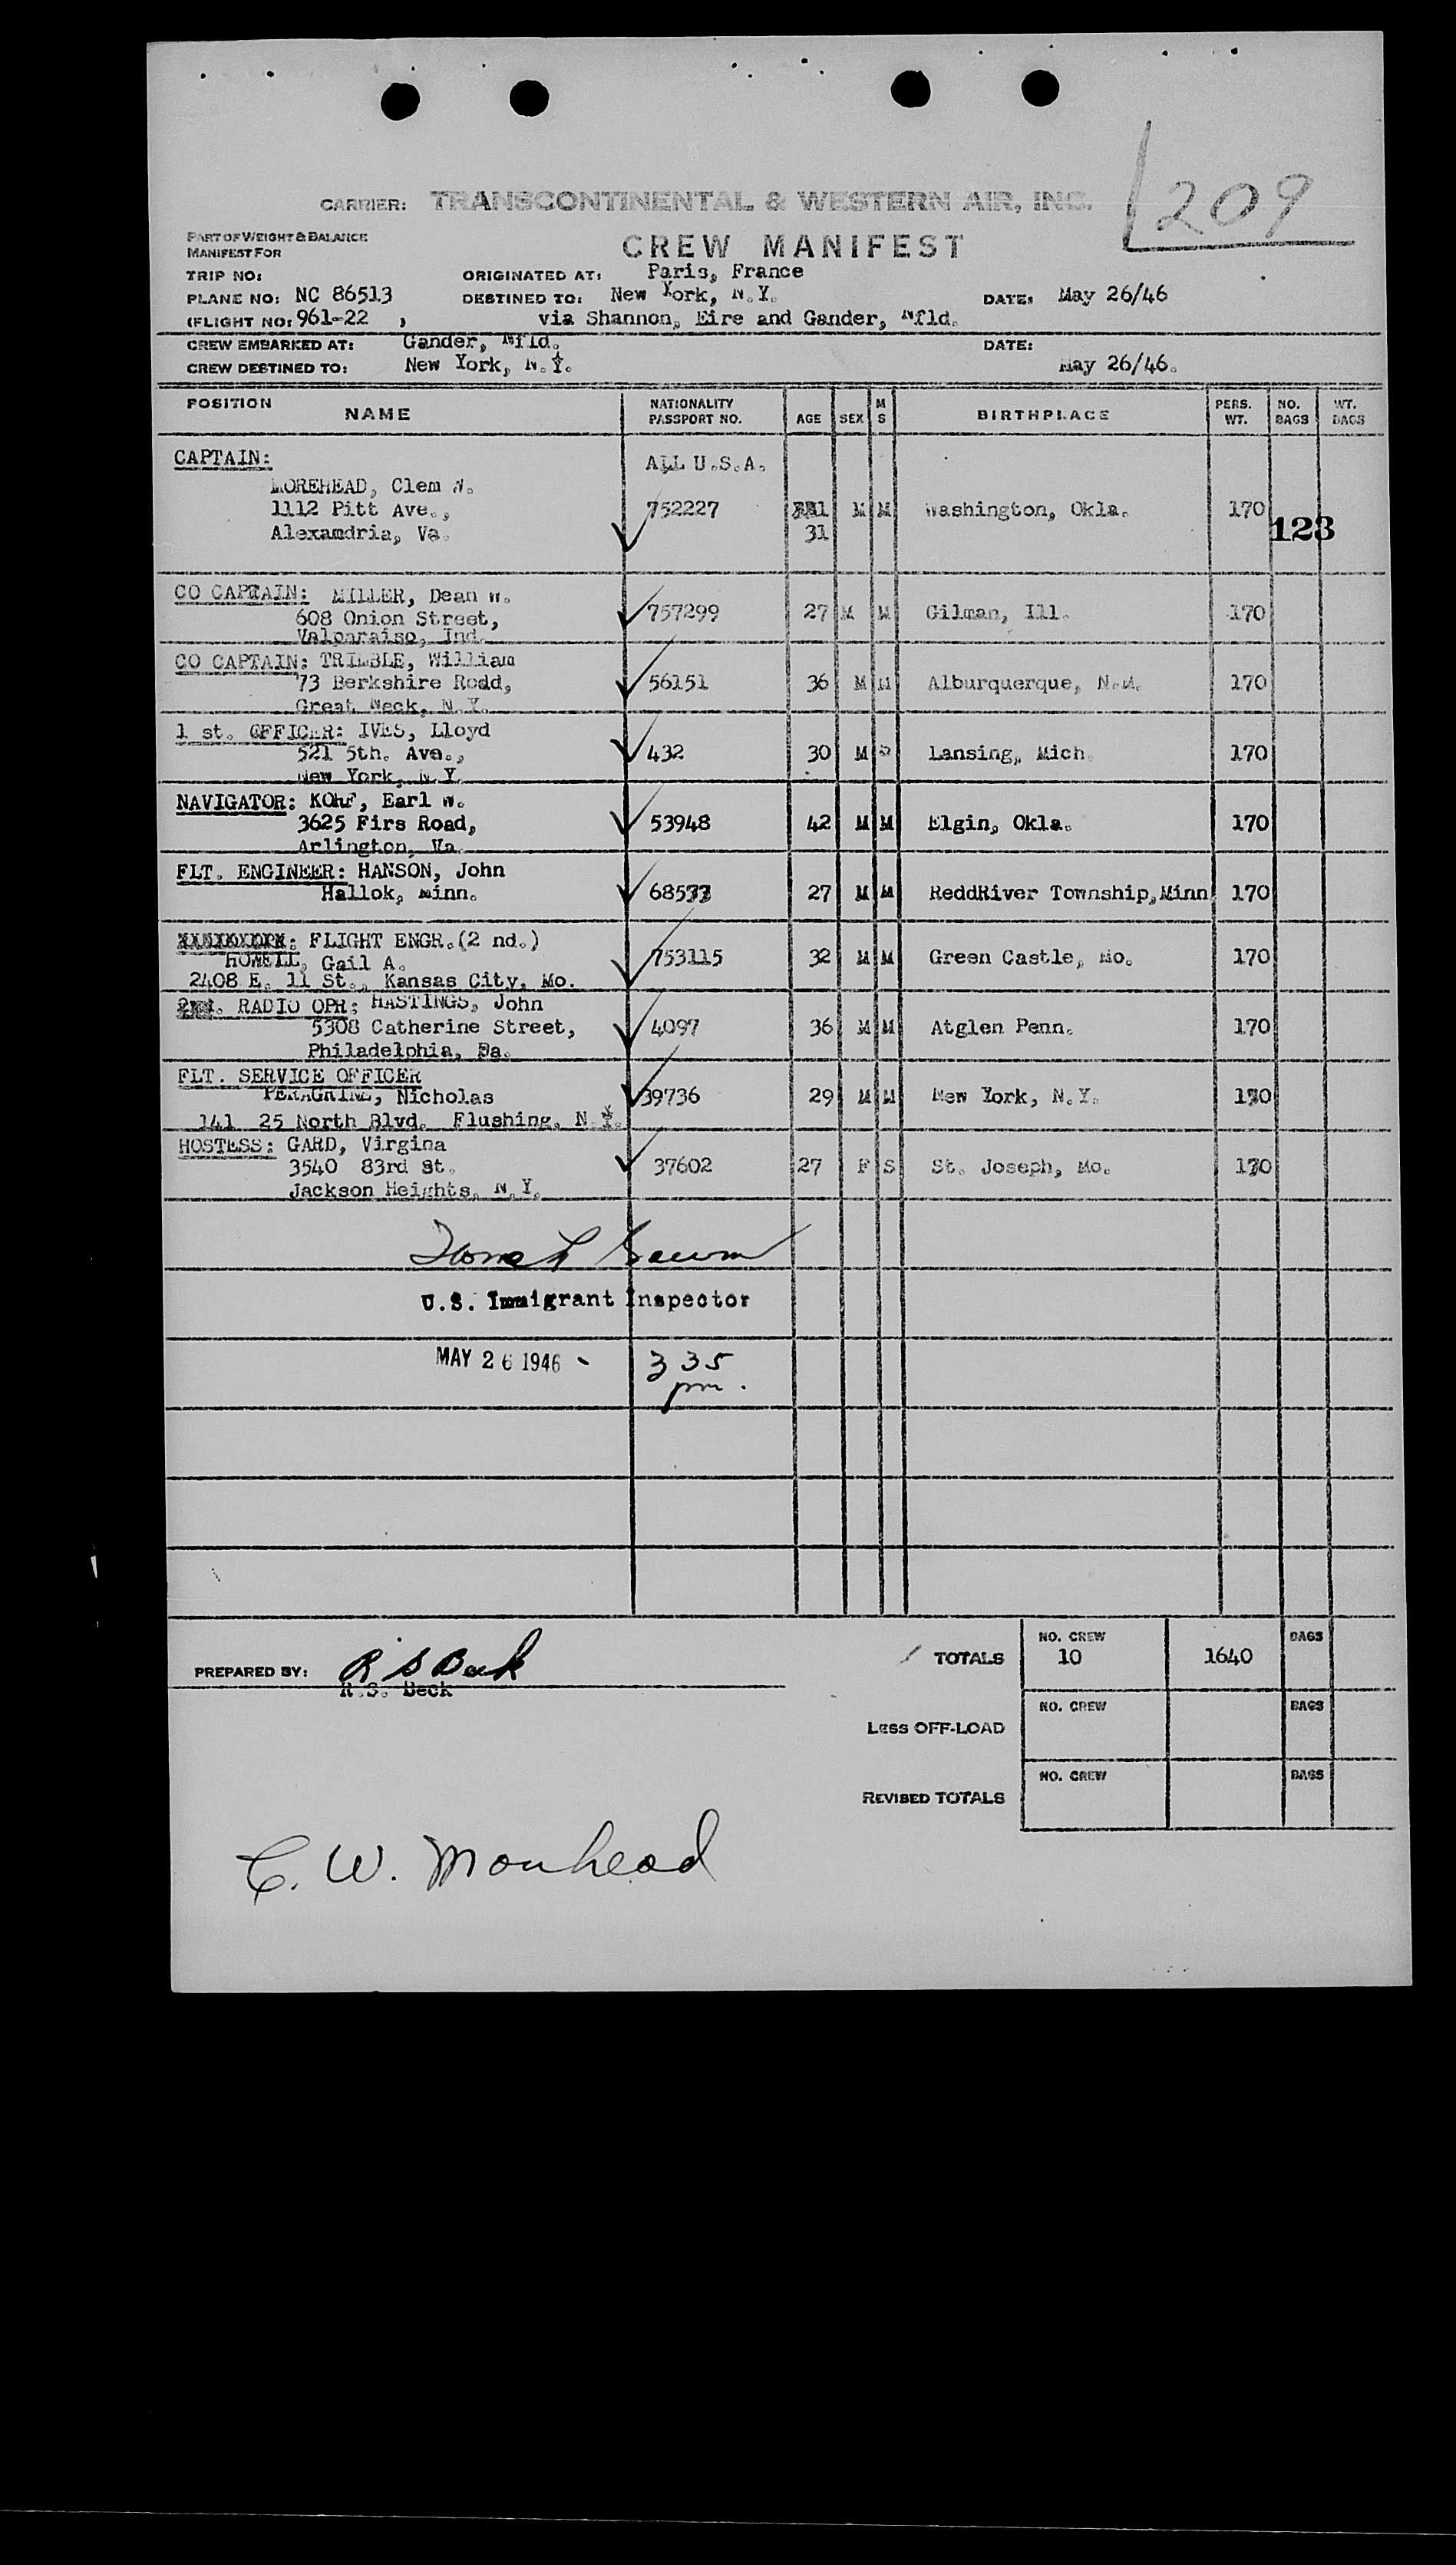 209
CARRIER: TRANSCONTINENTAL & WESTERN AIR, INC.
PART OF WEIGHT & BALANCE
MANIFEST FOR
CREW MANIFEST
TRIP NO: ORIGINATED AT: Paris, France
PLANE NO: NC 86513 DESTINED TO: New York, N.Y. DATE: May 26/46
(FLIGHT NO: 961-22 ) via Shannon, Eire and Gander, Nfld.
CREW EMBARKED AT: Gander, Nfld. DATE:
CREW DESTINED TO: New York, N.Y. May 26/46.
POSITION NAME NATIONALITY PASSPORT NO. AGE SEX M S BIRTHPLACE PERS. WT. NO. BAGS WT. BAGS
CAPTAIN: ALL U.S.A.
MOREHEAD, Clem W.
1112 Pitt Ave., 752227 M M Washington, Okla. 170
Alexamdria, Va. 31 123
CO CAPTAIN: MILLER, Dean W.
608 Onion Street, 757299 27 M M Gilman, Ill. 170
Valparaiso, Ind.
CO CAPTAIN: TRIMBLE, William
73 Berkshire Rodd, 56151 36 M M Alburquerque, N.M. 170
Great Neck, N.Y.
1 st. OFFICER: IVES, Lloyd
521 5th. Ave., 432 30 M Lansing, Mich. 170
New York, N.Y.
NAVIGATOR: Earl W.
3625 Firs Road, 53948 42 M M Elgin, Okla. 170
Arlington, Va.
FLT. ENGINEER: HANSON, John
Hallok, Minn. 27 M M ReddRiver Township,Minn 170
FLIGHT ENGR.(2 nd.)
HOWELL, Gail A. 753115 32 M M Green Castle, Mo. 170
2408 E. 11 St., Kansas City, Mo.
RADIO OPR: HASTINGS, John
5308 Catherine Street, 4097 36 M M Atglen Penn. 170
Philadelphia, Pa.
FLT. SERVICE OFFICER
PERAGRINE, Nicholas 39736 29 M M New York, N.Y.
141 25 North Blvd. Flushing, N.Y.
HOSTESS: GARD, Virgina
3540 83rd St. 37602 27 F S St. Joseph, Mo.
Jackson Heights, N.Y.
U.S. Immigrant Inspector
MAY 26 1946 3 35
pm.
NO. CREW BAGS
PREPARED BY: R S Beck TOTALS 10 1640
R.S. Beck
NO. CREW BAGS
Less OFF-LOAD
NO. CREW BAGS
REVISED TOTALS
C. W. Morehead